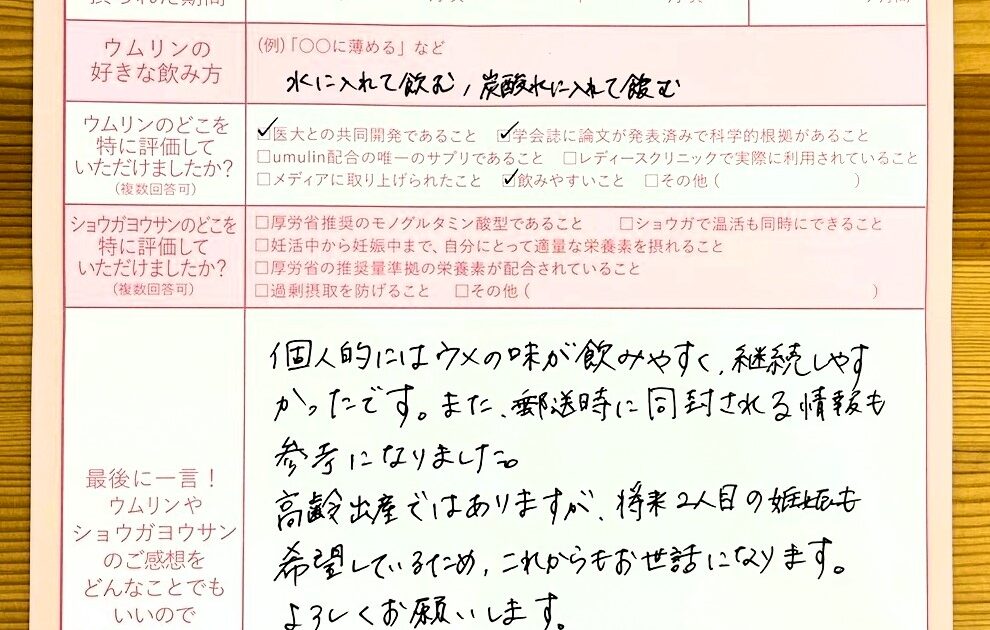 ウムリンの
好きな飲み方
(例)「〇〇に薄める」など
水に入れて飲む, 炭酸水に入れて飲む
ウムリンのどこを
特に評価して
いただけましたか?
(複数回答可)
☑医大との共同開発であること ☑学会誌に論文が発表済みで科学的根拠があること
□umulin配合の唯一のサプリであること □レディースクリニックで実際に利用されていること
□メディアに取り上げられたこと ☑飲みやすいこと □その他( )
ショウガヨウサンのどこを
特に評価して
いただけましたか?
(複数回答可)
□厚労省推奨のモノグルタミン酸型であること □ショウガで温活も同時にできること
□妊活中から妊娠中まで、自分にとって適量な栄養素を摂れること
□厚労省の推奨量準拠の栄養素が配合されていること
□過剰摂取を防げること □その他( )
最後に一言!
ウムリンや
ショウガヨウサン
のご感想を
どんなことでも
いいので
個人的にはウメの味が飲みやすく、継続しやす
かったです。また、郵送時に同封される情報も
参考になりました。
高齢出産ではありますが、将来2人目の妊娠も
希望しているため、これからもお世話になります。
よろしくお願いします。